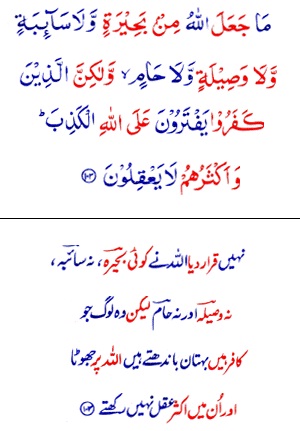 مَا جَعَلَ اللّٰهُ مِنْۢ بَحِيْرَةٍ وَّلَا سَآىِٕبَةٍ
وَّلَا وَصِيْلَةٍ وَّلَا حَامٍ ۙ وَّلٰكِنَّ الَّذِيْنَ
كَفَرُوْا يَفْتَرُوْنَ عَلَى اللّٰهِ الْكَذِبَ ؕ
وَاَكْثَرُهُمْ لَا يَعْقِلُوْنَ ﴿۱۰۳﴾
نہیں قرار دیا اللہ نے کوئی بحیرہ، نہ سائبہ،
نہ وصیلہ اور نہ حام لیکن وہ لوگ جو
کافر ہیں بہتان باندھتے ہیں اللہ پر جھوٹا
اور اُن میں اکثر عقل نہیں رکھتے ﴿۱۰۳﴾